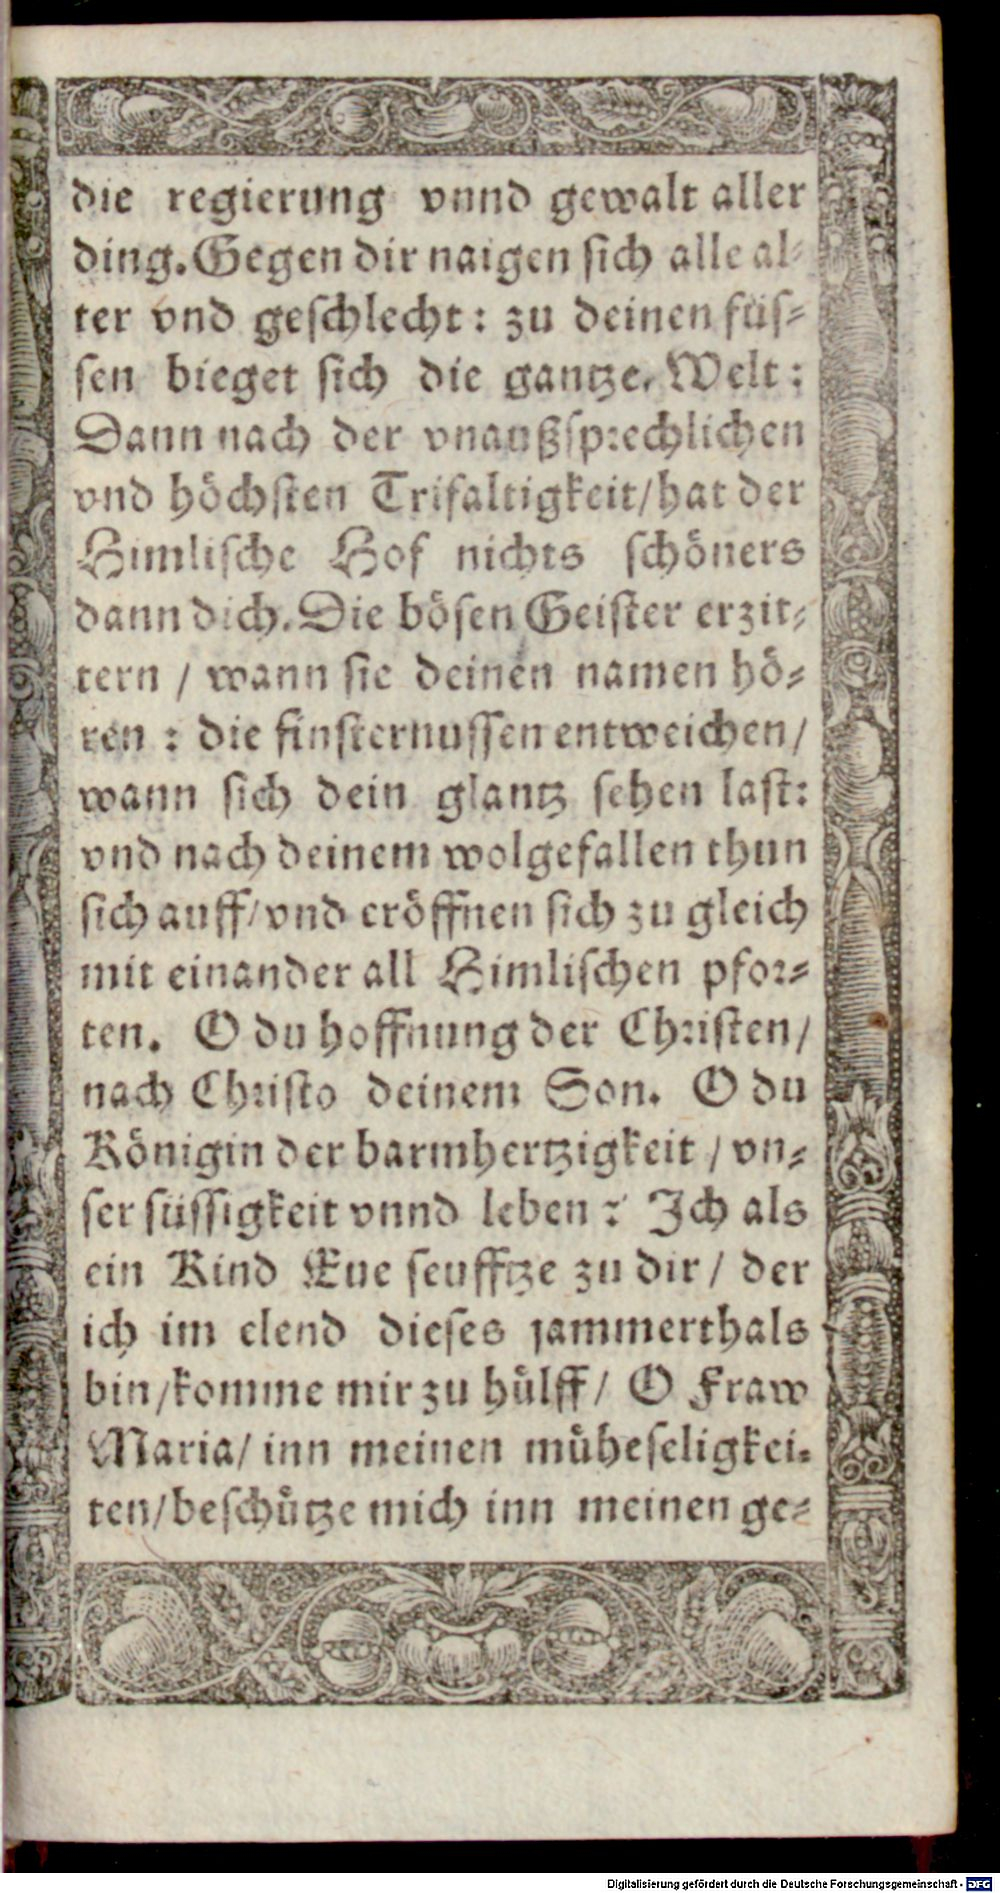 die regierung vnnd gewalt aller
ding. Gegen dir naigen sich alle al-
ter vnd geschlecht: zu deinen füs-
sen bieget sich die gantze. Welt:
Dann nach der vnaußsprechlichen
vnd höchsten Trifaltigkeit/hat der
Himlische Hof nichts schöners
dann dich. Die bösen Geister erzit-
tern / wann sie deinen namen hö-
ren : die finsternussen entweichen/
wann sich dein glantz sehen last:
vnd nach deinem wolgefallen thun
sich auff/vnd eröffnen sich zu gleich
mit einander all Himlischen pfor-
ten. O du hoffnung der Christen/
nach Christo deinem Son. O du
Königin der barmhertzigkeit / vn-
ser süssigkeit vnnd leben: Ich als
ein Kind Eue seufftze zu dir/ der
ich im elend dieses jammerthals
bin/komme mir zu hülff/ O Fraw
Maria/ inn meinen müheseligkei-
ten/beschütze mich inn meinen ge-
Digitalisierung gefördert durch die Deutsche Forschungsgemeinschaft - DFG